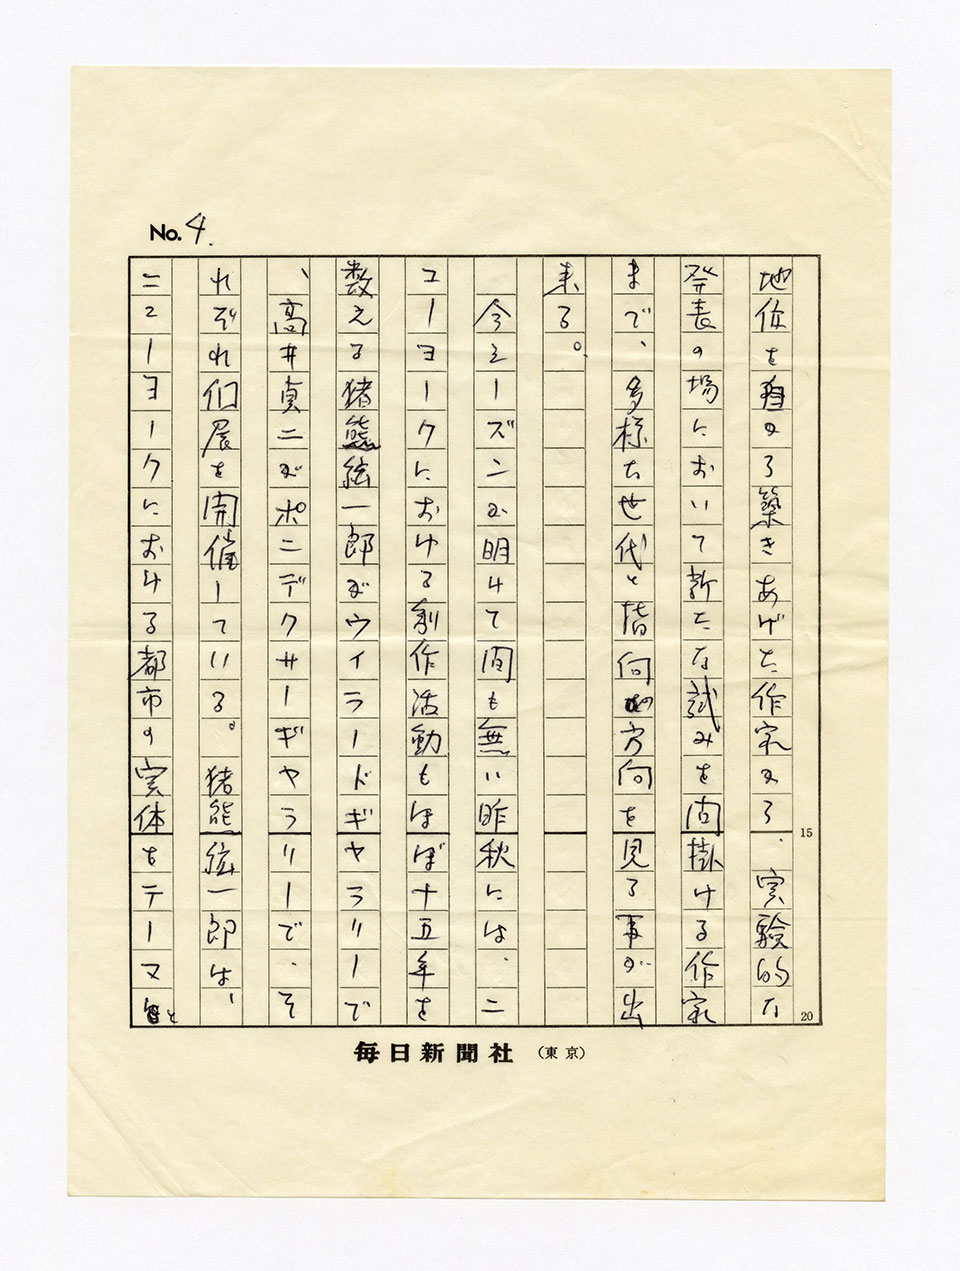 No. 4.
地位を自から築きあげた作家から、実験的な
発表の場において新たな試みを問掛ける作家
まで、多様な世代と指向方向を見る事が出
来る。
今シーズンが明けて間も無い昨秋には、ニ
ューヨークにおける創作活動もほぼ十五年を
数える猪熊絃一郎がウイラードギャラリーで
、高井貞二がポニデクサーギャラリーで、そ
れぞれ個展を開催している。猪熊絃一郎は、
ニューヨークにおける都市の実体をテーマと
15
20
毎日新聞社 (東京)